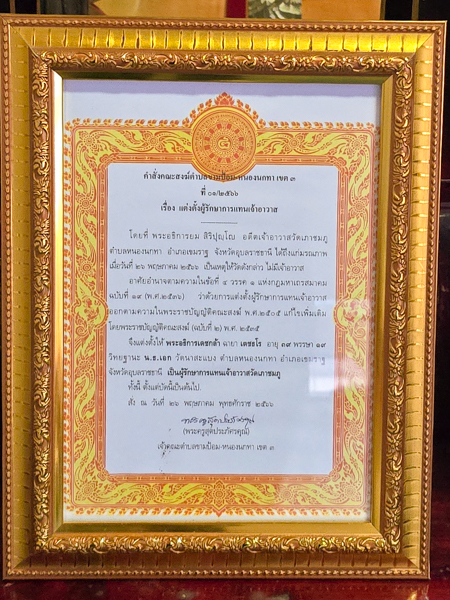 คำสั่งคณะสงฆ์ตำบลขามป้อม-หนองนกทา เขต ๓
ที่ ๐๑/๒๕๖๖
เรื่อง แต่งตั้งผู้รักษาการแทนเจ้าอาวาส
โดยที่ พระอธิการยม สิริปุญฺโญ อดีตเจ้าอาวาสวัดเภาชมภู
ตำบลหนองนกทา อำเภอเขมราฐ จังหวัดอุบลราชธานี ได้ถึงแก่มรณภาพ
เมื่อวันที่ ๒๖ พฤษภาคม ๒๕๖๖ เป็นเหตุให้วัดดังกล่าว ไม่มีเจ้าอาวาส
อาศัยอำนาจตามความในข้อที่ ๔ วรรค ๑ แห่งกฎมหาเถรสมาคม
ฉบับที่ ๑๙ (พ.ศ.๒๕๓๖) ว่าด้วยการแต่งตั้งผู้รักษาการแทนเจ้าอาวาส
ออกตามความในพระราชบัญญัติคณะสงฆ์ พ.ศ.๒๕๐๕ แก้ไขเพิ่มเติม
โดยพระราชบัญญัติคณะสงฆ์ (ฉบับที่ ๒) พ.ศ. ๒๕๓๕
จึงแต่งตั้งให้ พระอธิการเดชกล้า ฉายา เตชธโร อายุ ๓๙ พรรษา ๑๙
วิทยฐานะ น.ธ.เอก วัดนาสะแบง ตำบลหนองนกทา อำเภอเขมราฐ
จังหวัดอุบลราชธานี เป็นผู้รักษาการแทนเจ้าอาวาสวัดเภาชมภู
ทั้งนี้ ตั้งแต่บัดนี้เป็นต้นไป
สั่ง ณ วันที่ ๒๖ พฤษภาคม พุทธศักราช ๒๕๖๖
(พระครูสุตประภัรคุณ์)
เจ้าคณะตำบลขามป้อม-หนองนกทา เขต ๓